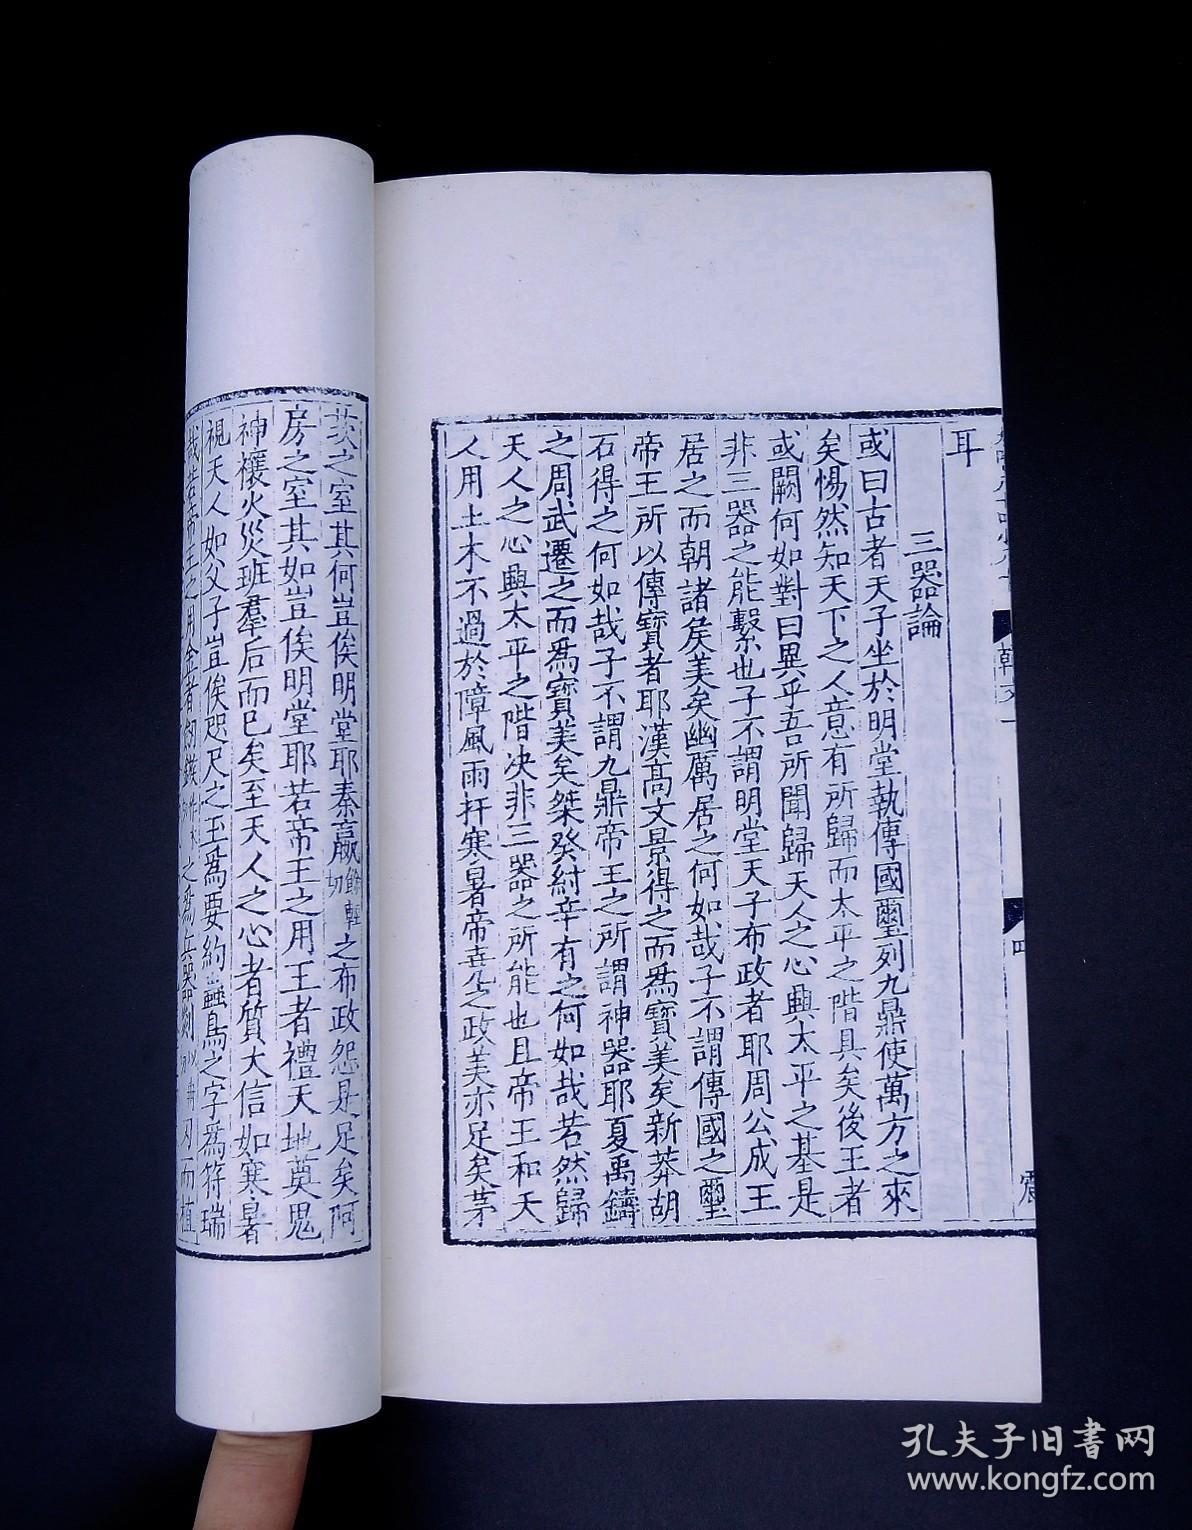 耳
三器論
或曰古者天子坐於明堂執傳國璽列九鼎使萬方之來
矣惕然知天下之人意有所歸而太平之階具矣後王者
或闕何如對曰異乎吾所聞歸天人之心興太平之基是
非三器之能繫也子不謂明堂天子布政者耶周公成王
居之而朝諸侯美矣幽厲居之何如哉子不謂傳國之璽
帝王所以傳寶者耶漢高文景得之而爲寶美矣新莽胡
石得之何如哉子不謂九鼎帝王之所謂神器耶夏禹鑄
之周武遷之而爲寶美矣桀癸紂辛有之何如哉若然歸
天人之心興太平之階決非三器之所能也且帝王和天
人用土木不過於障風雨扞寒暑帝堯之政美亦足矣茅
茨之室其何豈俟明堂耶秦嬴之布政怨是足矣阿
房之室其如豈俟明堂耶若帝王之用王者禮天地奠鬼
神禳火災班羣后而已矣至天人之心者質大信如寒暑
視天人如父子豈俟咫尺之玉爲要約蟲鳥之字爲符瑞
哉若帝王之用金者 之爲兵器 刃而植
四
震
孔夫子旧書网
www.kongfz.com